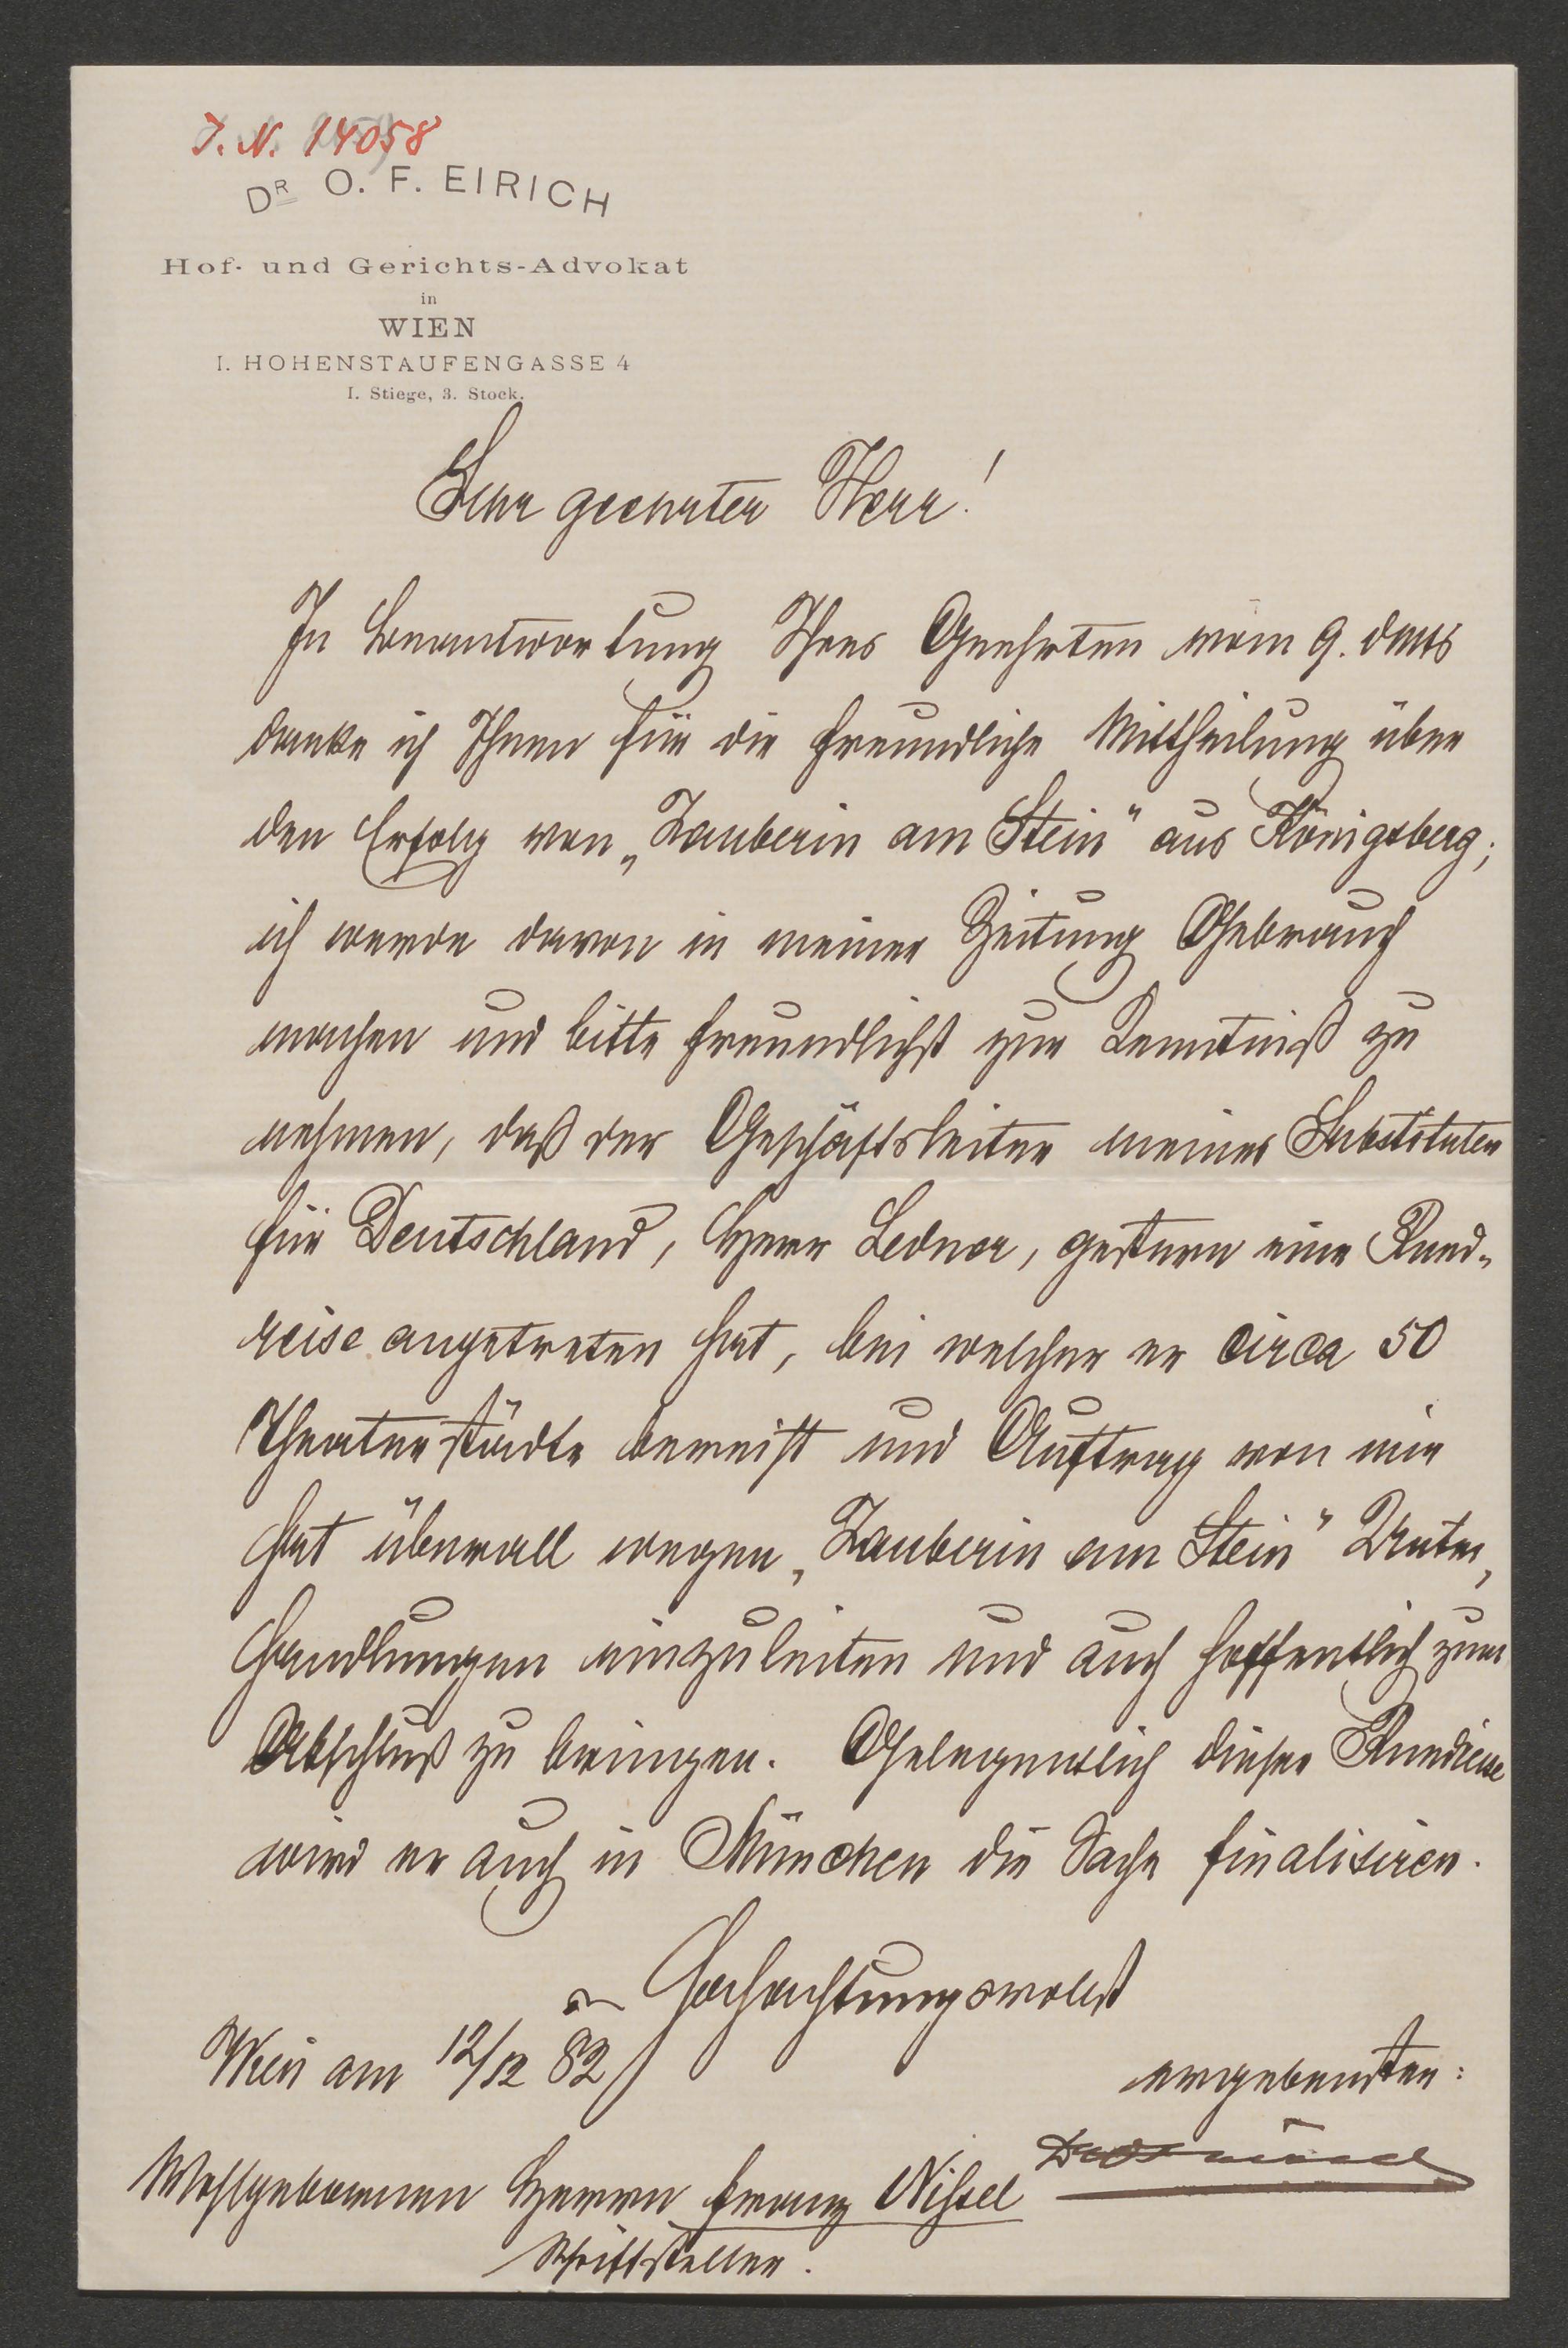 J. N. 14058
DR O. F. EIRICH
Hof- und Gerichts-Advokat
in
WIEN
I. HOHENSTAUFENGASSE 4
I. Stiege, 3. Stock.
Sehr geehrter Herr!
In Beantwortung Ihres Geehrten vom 9. dmts
danke ich Ihnen für die freundliche Mittheilung über
den Erfolg von „Zauberin am Stein" aus Königsberg;
ich werde davon in meiner Zeitung Gebrauch
machen und bitte freundlichst zur Kenntniß zu
nehmen, daß der Geschäftsleiter meines Substituten
für Deutschland, Herr Ledner, gestern eine Rund-
reise angetreten hat, bei welcher er circa 50
Theaterstädte bereist und Auftrag von mir
hat überall wegen „Zauberin am Stein" Unter-
handlungen einzuleiten und auch hoffentlich zum
Abschluß zu bringen. Gelegentlich dieser Rundreise
wird er auch in München die Sache finalisiren.
Hochachtungsvollst
Wien am 12/12 82
ergebenster:
Wohlgeborenen Herrn Franz Nissel
Schriftsteller.